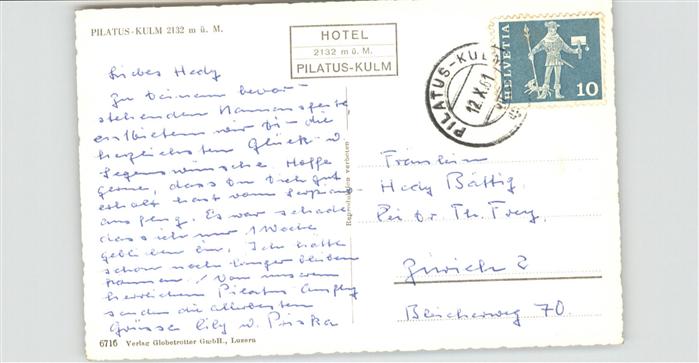 PILATUS-KULM 2132 m ü. M.
HOTEL
2132 m ü. M.
PILATUS-KULM
PILATUS-KULM
12.X.61
HELVETIA
10
Liebes Hedy
Zu Deinem bevor-
stehenden Namensfeste
entbieten wir Dir die
herzlichsten Glück- u.
Segenswünsche. Hoffe
gerne, dass Du Dich gut
erholt hast vom
. Es war schade
dass ich nur 1 Woche
geblieben bin. Ich hätte
schon noch länger bleiben
können! Von unserem
herrlichen Pilatus Ausflug
senden die allerbesten
Grüsse Lily u. Priska
Reproduktion verboten
Fräulein
Hedy Bättig
bei Dr. Th. Frey
Zürich 2
Bleicherweg 70.
6716 Verlag Globetrotter GmbH., Luzern